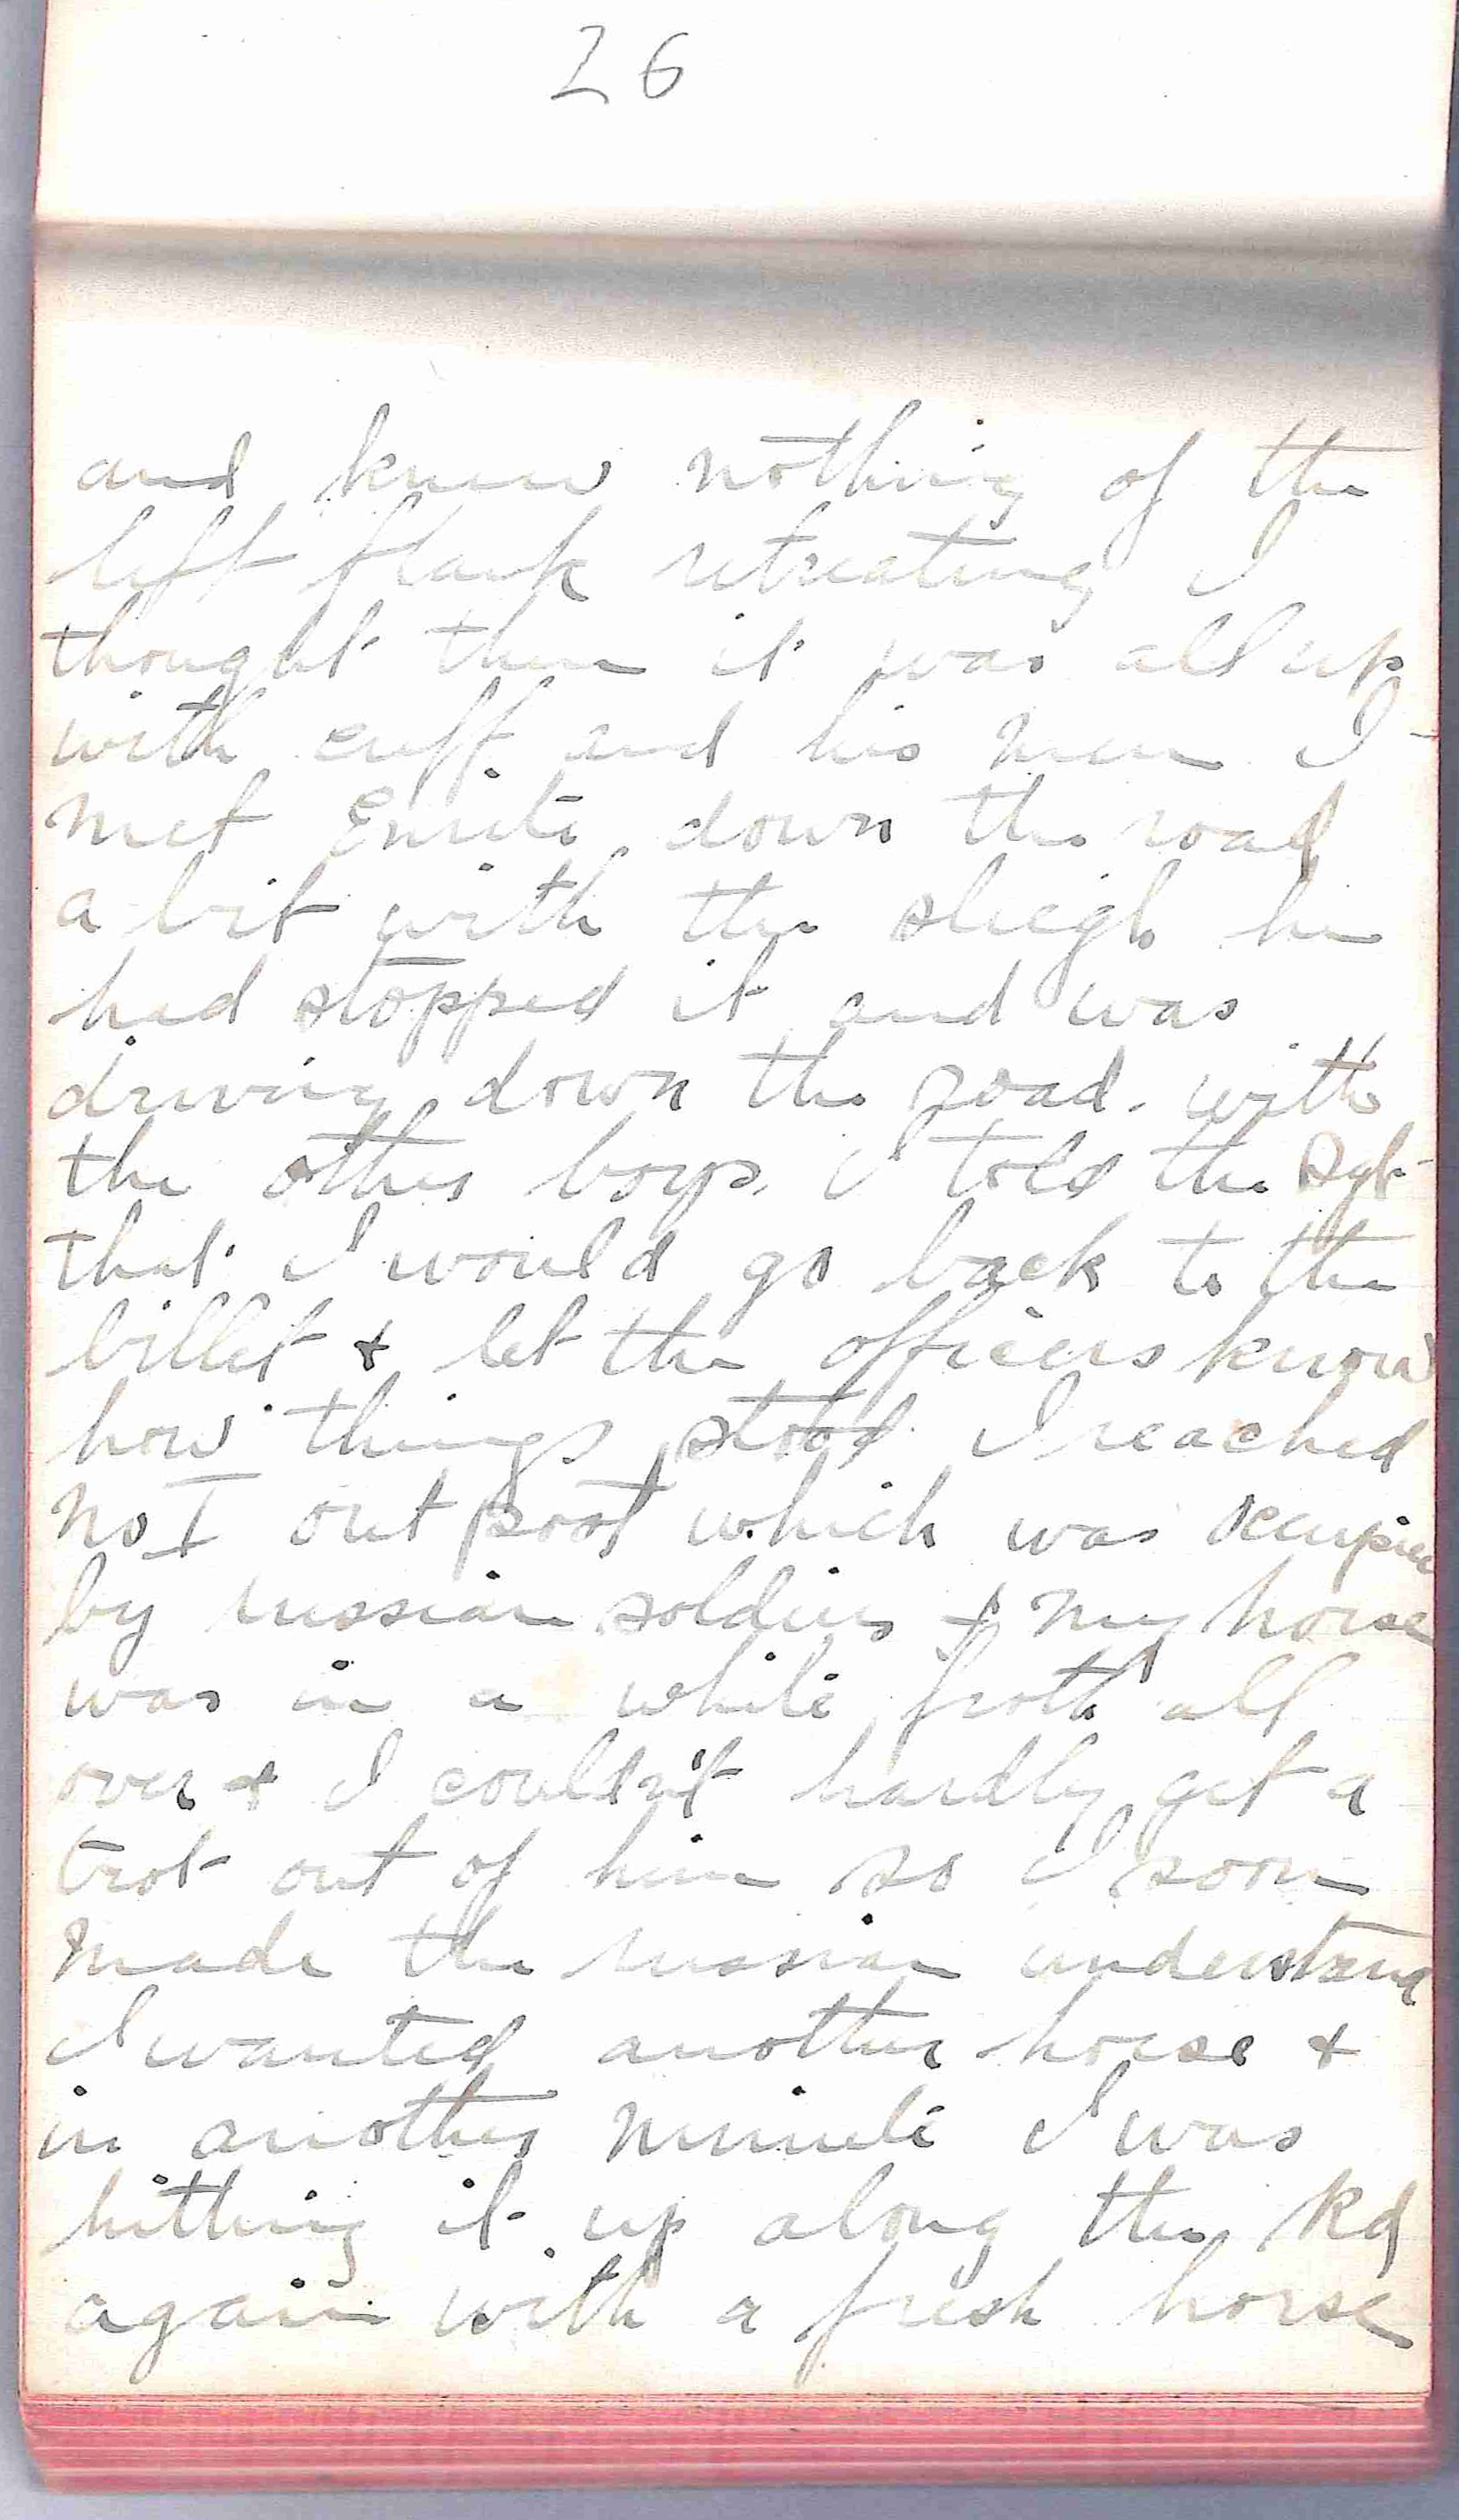 26
and knew nothing of the
left flank retreating I
thought then it was all up
with cuff and his men I
met down the road
a bit with the sleigh he
had stopped it and was
driving down the road. with
the other boys. I told the Sgt
that I would go back to the
billet & let the officers know
how things stood. I reached
No I out post which was occupied
by russian soldiers & my horse
was in a white froth all
over & I couldn't hardly get a
trot out of him so I soon
made the russian understand
I wanted another horse &
in another minute I was
hitting it up along the Rd
again with a fresh horse